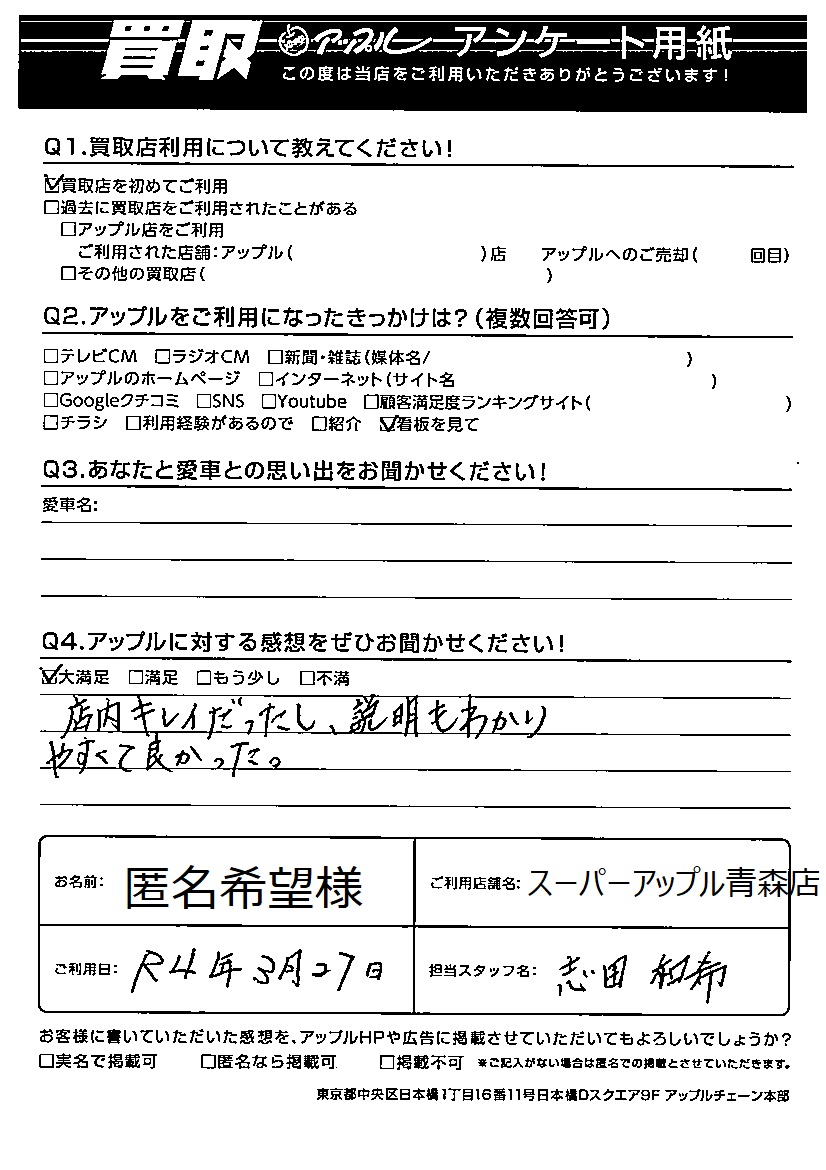 買取 アップル アンケート用紙
この度は当店をご利用いただきありがとうございます!
Q1.買取店利用について教えてください!
☑買取店を初めてご利用
□過去に買取店をご利用されたことがある
□アップル店をご利用
ご利用された店舗:アップル( )店 アップルへのご売却( 回目)
□その他の買取店( )
Q2.アップルをご利用になったきっかけは?(複数回答可)
□テレビCM □ラジオCM □新聞・雑誌(媒体名/ )
□アップルのホームページ □インターネット(サイト名 )
□Googleクチコミ □SNS □Youtube □顧客満足度ランキングサイト( )
□チラシ □利用経験があるので □紹介 ☑看板を見て
Q3.あなたと愛車との思い出をお聞かせください!
愛車名:
Q4.アップルに対する感想をぜひお聞かせください!
☑大満足 □満足 □もう少し □不満
店内キレイだったし、説明もわかり
やすくて良かった。
お名前: 匿名希望様 ご利用店舗名: スーパーアップル青森店
ご利用日: R4年3月27日 担当スタッフ名: 志田 和希
お客様に書いていただいた感想を、アップルHPや広告に掲載させていただいてもよろしいでしょうか?
□実名で掲載可 □匿名なら掲載可 □掲載不可 ※ご記入がない場合は匿名での掲載とさせていただきます。
東京都中央区日本橋1丁目16番11号日本橋Dスクエア9F アップルチェーン本部